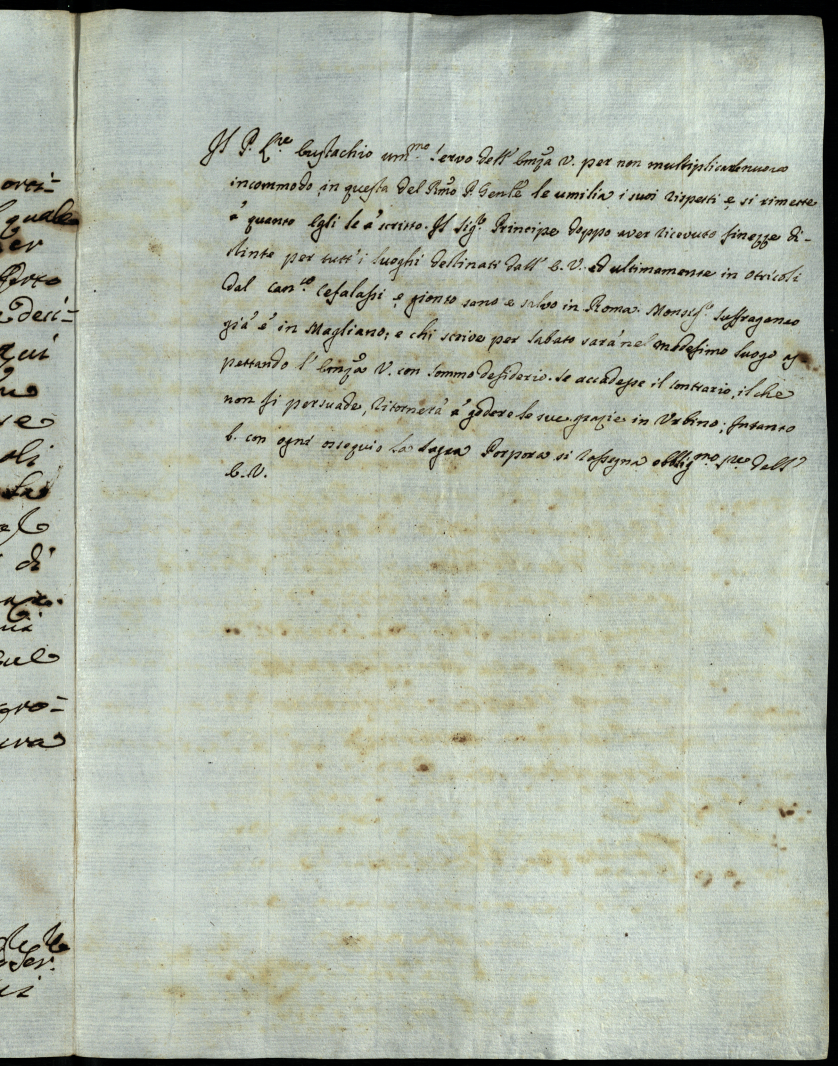 orti=
quale
er
fferto
e deci=
qui
re
oli
la
di
gro=
ura
Il P. L.re Eustachio um.mo servo dell' Em̃za V. per non multiplicarle nuovo
incommodo in questa del Rmo P. Genle le umilia i suoi rispetti e si rimette
a' quanto Egli le a' scritto. Il Sig.e Principe doppo aver ricevuto finezze di-
stinte per tutt'i luoghi destinati dall' E. V. ed ultimamente in Otricoli
dal Can.co Cefalassi e gionto sano e salvo in Roma. Monsig.r Suffraganeo
già è in Magliano; e chi scrive per Sabato sarà nel medesimo luogo as-
pettando l' Em̃za V. con sommo desiderio. Se accadesse il contrario, il che
non si persuade, ritornerà a' godere le sue grazie in Urbino; Intanto
b. con ogni ossequio la Sagra Porpora si rassegna obblig.mo re dell'
E. V.